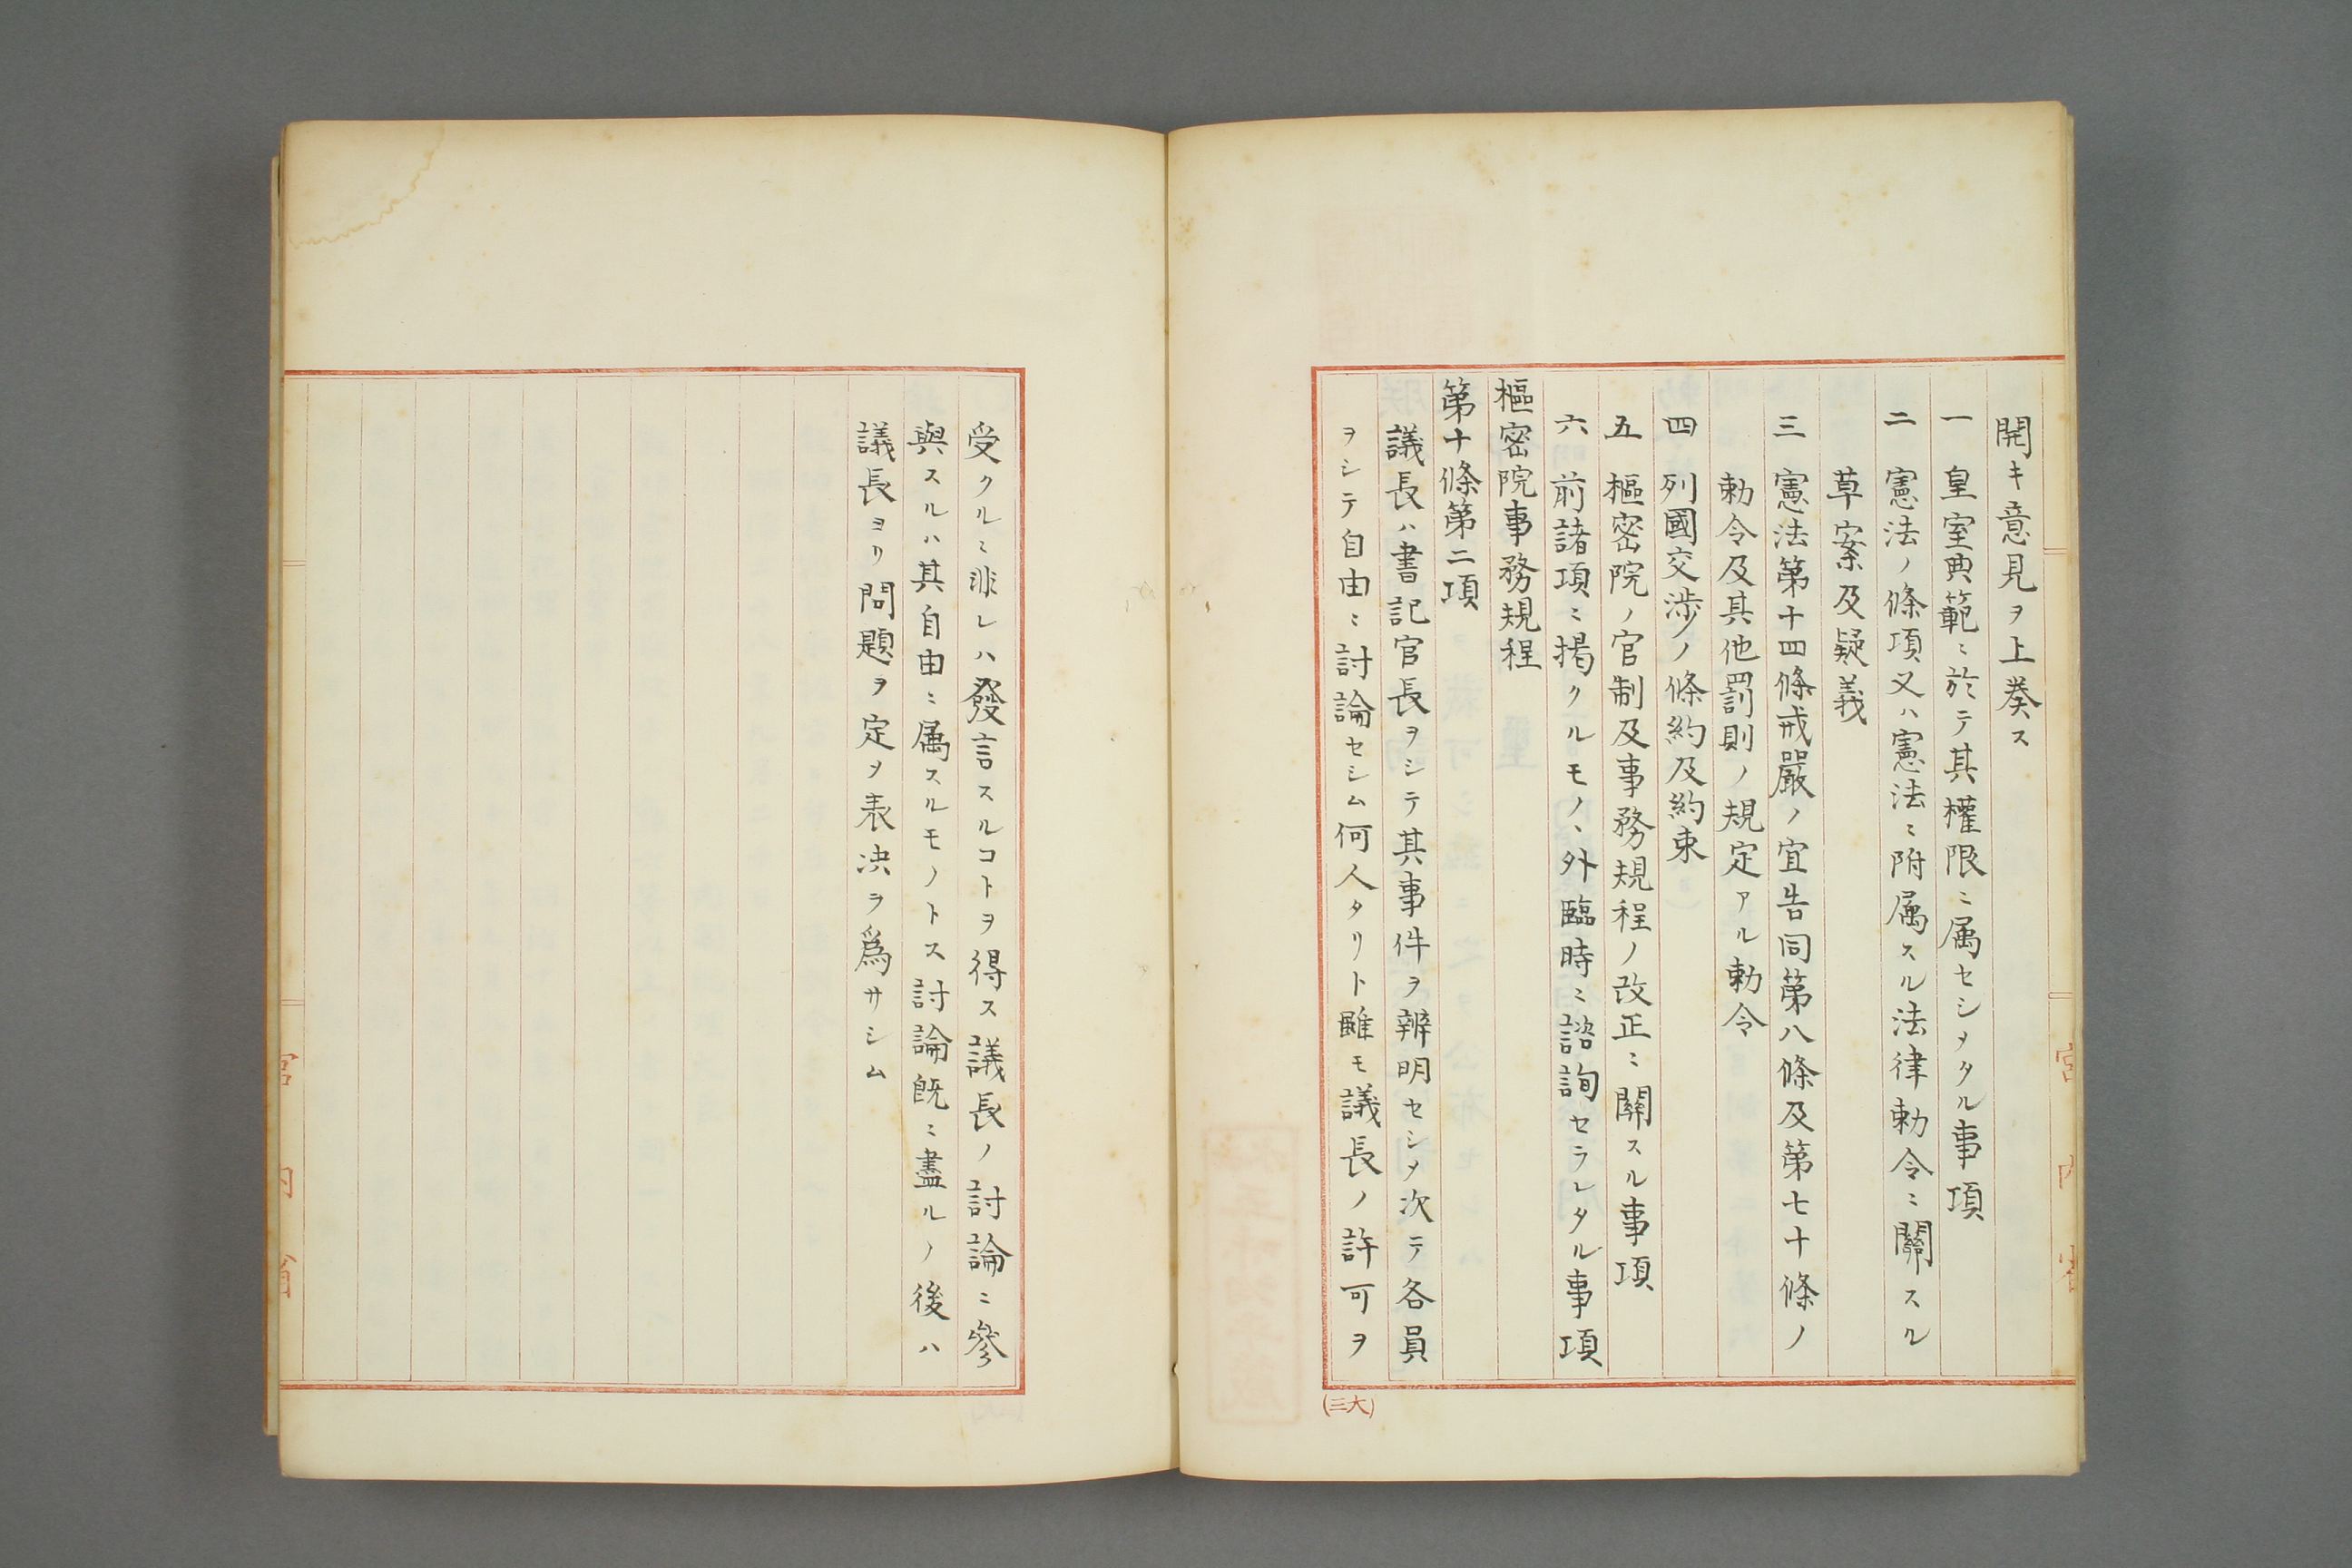 開キ意見ヲ上奏ス
一 皇室典範ニ於テ其權限ニ属セシメタル事項
二 憲法ノ條項又ハ憲法ニ附属スル法律勅令ニ關スル
草案及疑義
三 憲法第十四條戒嚴ノ宣告同第八條及第七十條ノ
勅令及其他罰則ノ規定アル勅令
四 列國交渉ノ條約及約束
五 樞密院ノ官制及事務規程ノ改正ニ關スル事項
六 前諸項ニ掲クルモノヽ外臨時ニ諮詢セラレタル事項
樞密院事務規程
第十條第二項
議長ハ書記官長ヲシテ其事件ヲ辨明セシメ次テ各員
ヲシテ自由ニ討論セシム何人タリト雖モ議長ノ許可ヲ
(大三)
宮內省
受クルニ非レハ發言スルコトヲ得ス議長ノ討論ニ參
與スルハ其自由ニ属スルモノトス討論既ニ盡ルノ後ハ
議長ヨリ問題ヲ定メ表决ヲ爲サシム
宮內省